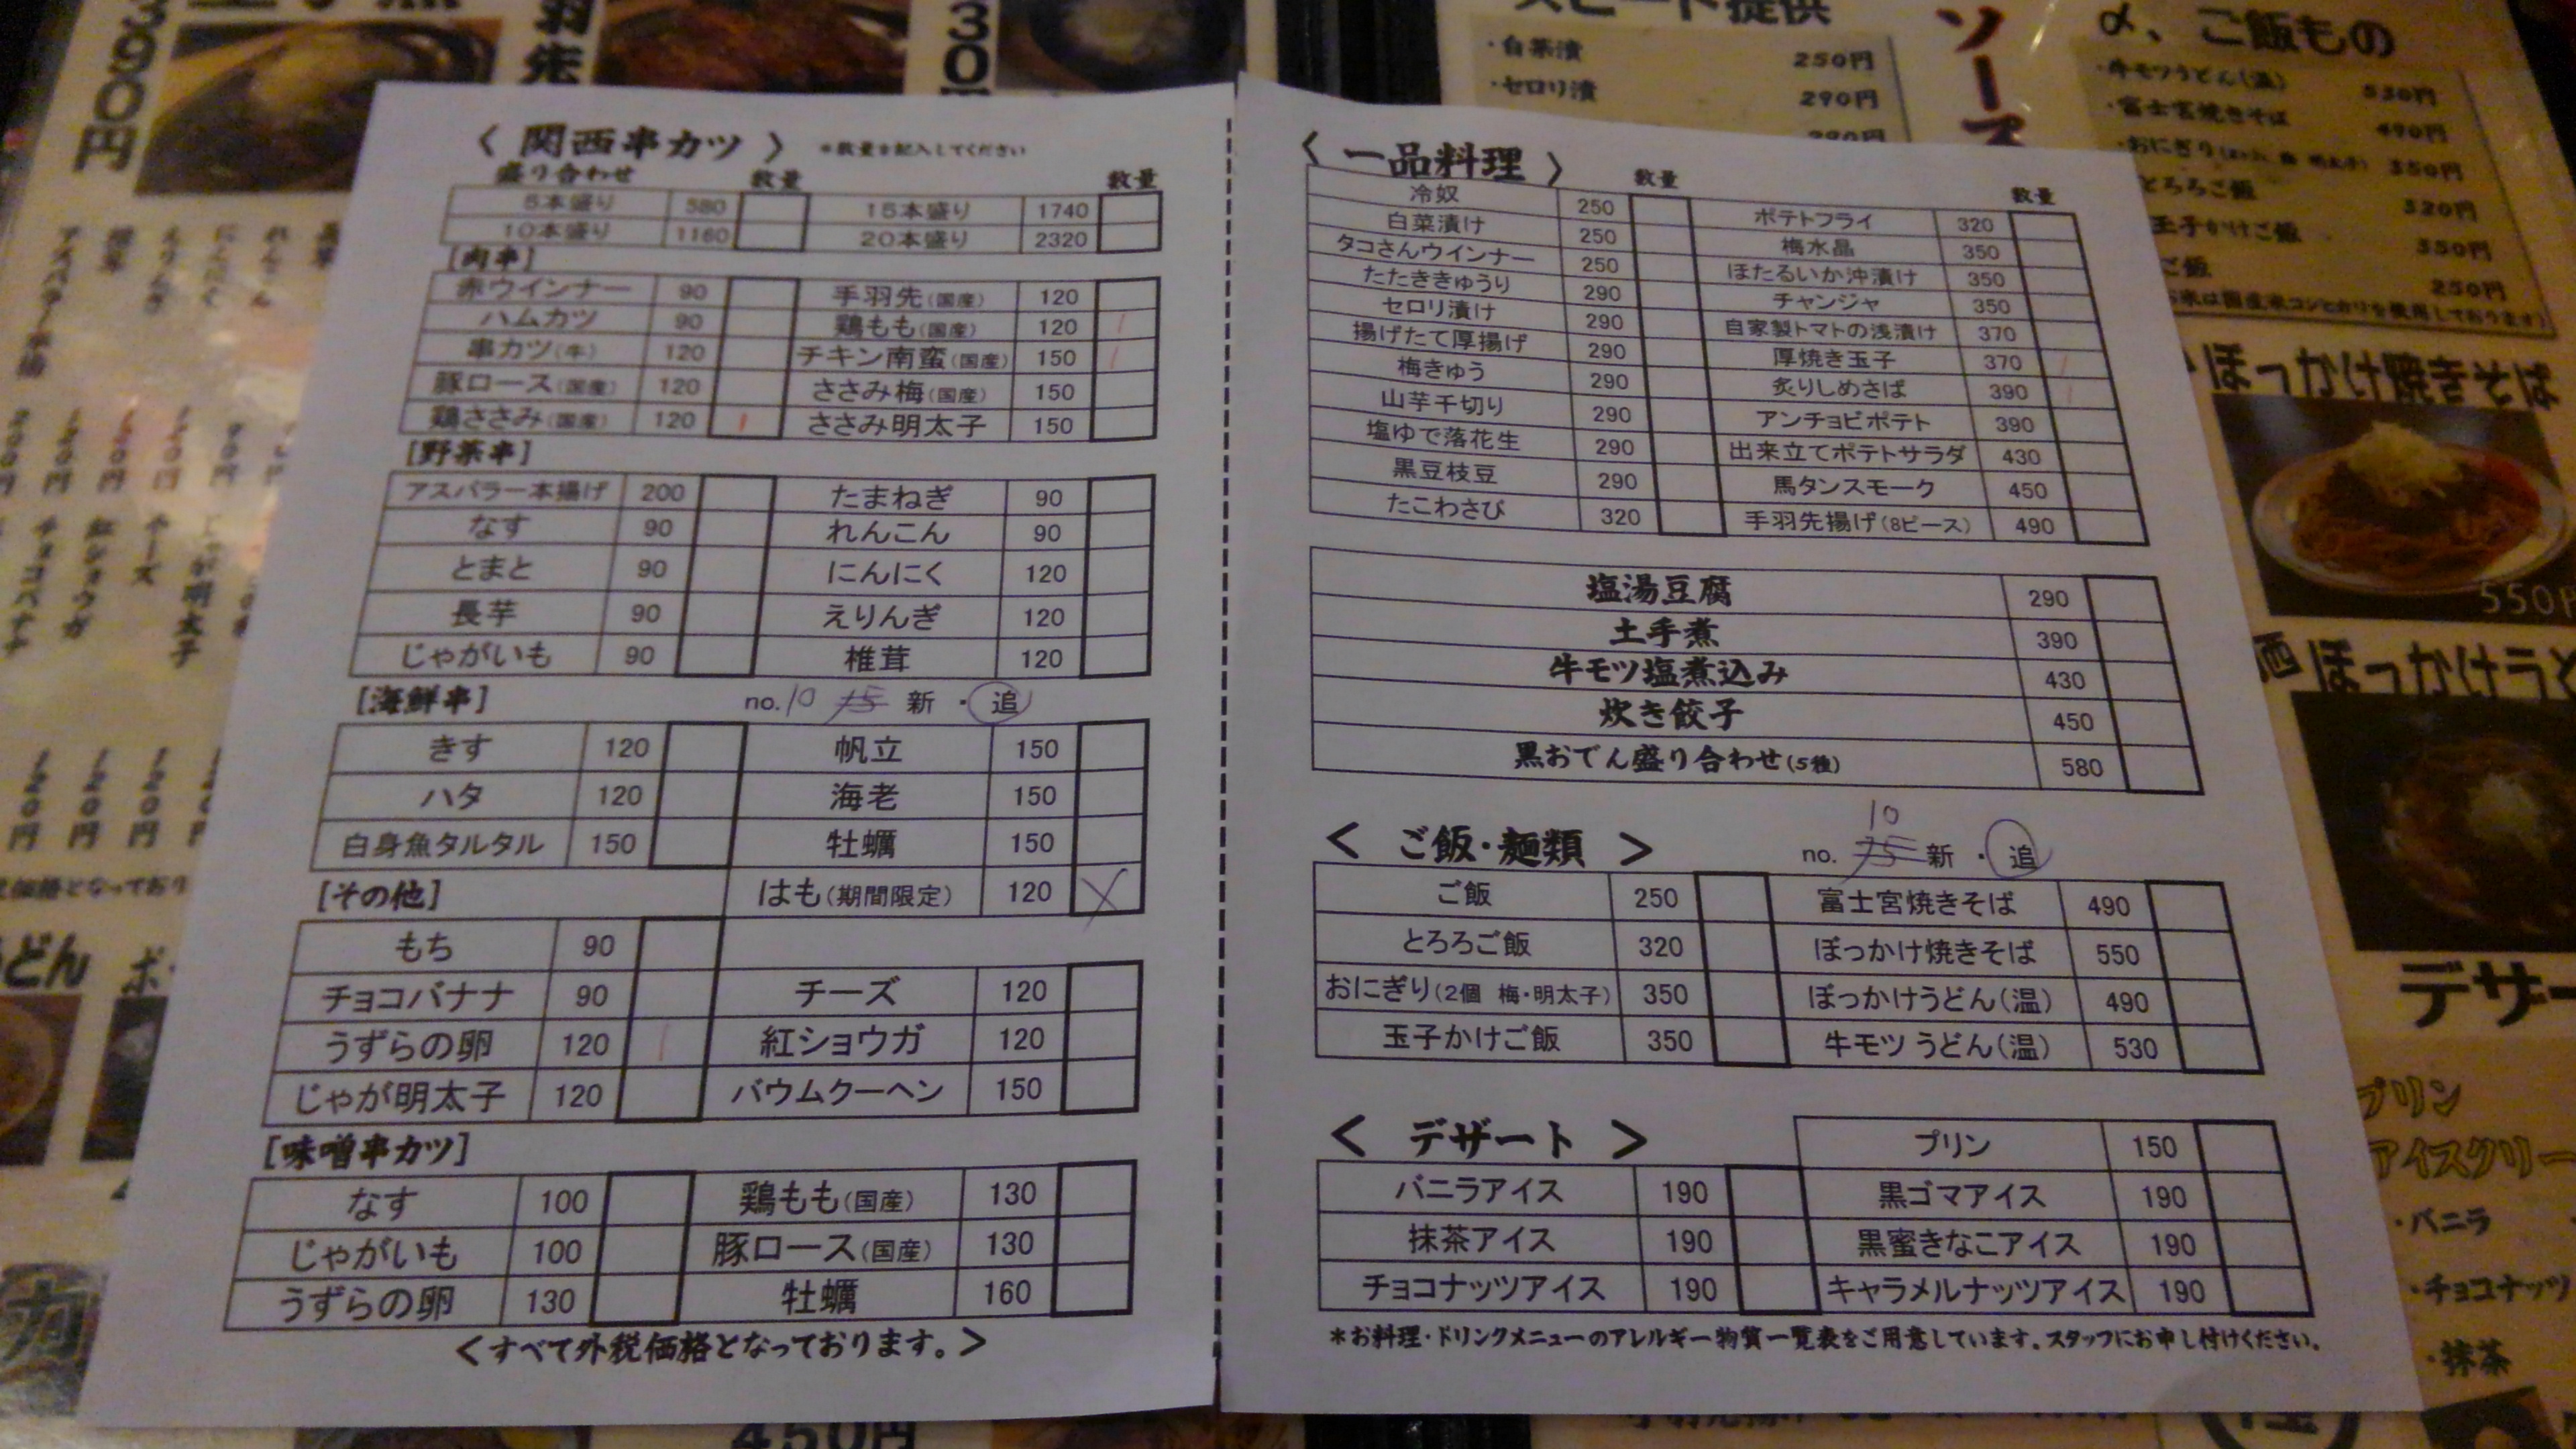 390円
スピード提供
・白菜漬 250円
・セロリ漬 290円
290円
ソース
〆、ご飯もの
・牛モツうどん(温) 530円
・富士宮焼きそば 490円
350円
とろろご飯 320円
玉子かけご飯 350円
ご飯 250円
お米は国産米コシヒカリを使用しております)
ぼっかけ焼きそば
550円
ぼっかけうど
デザー
プリン
アイスクリー
・バニラ
・チョコナッツ
・抹茶
〈 関西串カツ 〉 *数量を記入してください
盛り合わせ 数量 数量
5本盛り 580 15本盛り 1740
10本盛り 1160 20本盛り 2320
[肉串]
赤ウインナー 90 手羽先(国産) 120
ハムカツ 90 鶏もも(国産) 120 1
串カツ(牛) 120 チキン南蛮(国産) 150 1
豚ロース(国産) 120 ささみ梅(国産) 150
鶏ささみ(国産) 120 1 ささみ明太子 150
[野菜串]
アスパラ一本揚げ 200 たまねぎ 90
なす 90 れんこん 90
とまと 90 にんにく 120
長芋 90 えりんぎ 120
じゃがいも 90 椎茸 120
[海鮮串] no.10 75 新・追
きす 120 帆立 150
ハタ 120 海老 150
白身魚タルタル 150 牡蠣 150
[その他] はも(期間限定) 120 X
もち 90
チョコバナナ 90 チーズ 120
うずらの卵 120 1 紅ショウガ 120
じゃが明太子 120 バウムクーヘン 150
[味噌串カツ]
なす 100 鶏もも(国産) 130
じゃがいも 100 豚ロース(国産) 130
うずらの卵 130 牡蠣 160
<すべて外税価格となっております。>
〈 一品料理 〉 数量 数量
冷奴 250 ポテトフライ 320
白菜漬け 250 梅水晶 350
タコさんウインナー 250 ほたるいか沖漬け 350
たたききゅうり 290 チャンジャ 350
セロリ漬け 290 自家製トマトの浅漬け 370
揚げたて厚揚げ 290 厚焼き玉子 370 1
梅きゅう 290 炙りしめさば 390 1
山芋千切り 290 アンチョビポテト 390
塩ゆで落花生 290 出来立てポテトサラダ 430
黒豆枝豆 290 馬タンスモーク 450
たこわさび 320 手羽先揚げ(8ピース) 490
塩湯豆腐 290
土手煮 390
牛モツ塩煮込み 430
炊き餃子 450
黒おでん盛り合わせ(5種) 580
10
< ご飯・麺類 > no. 75 新・追
ご飯 250 富士宮焼きそば 490
とろろご飯 320 ぼっかけ焼きそば 550
おにぎり(2個 梅・明太子) 350 ぼっかけうどん(温) 490
玉子かけご飯 350 牛モツうどん(温) 530
< デザート > プリン 150
バニラアイス 190 黒ゴマアイス 190
抹茶アイス 190 黒蜜きなこアイス 190
チョコナッツアイス 190 キャラメルナッツアイス 190
*お料理・ドリンクメニューのアレルギー物質一覧表をご用意しています。スタッフにお申し付けください。
450円